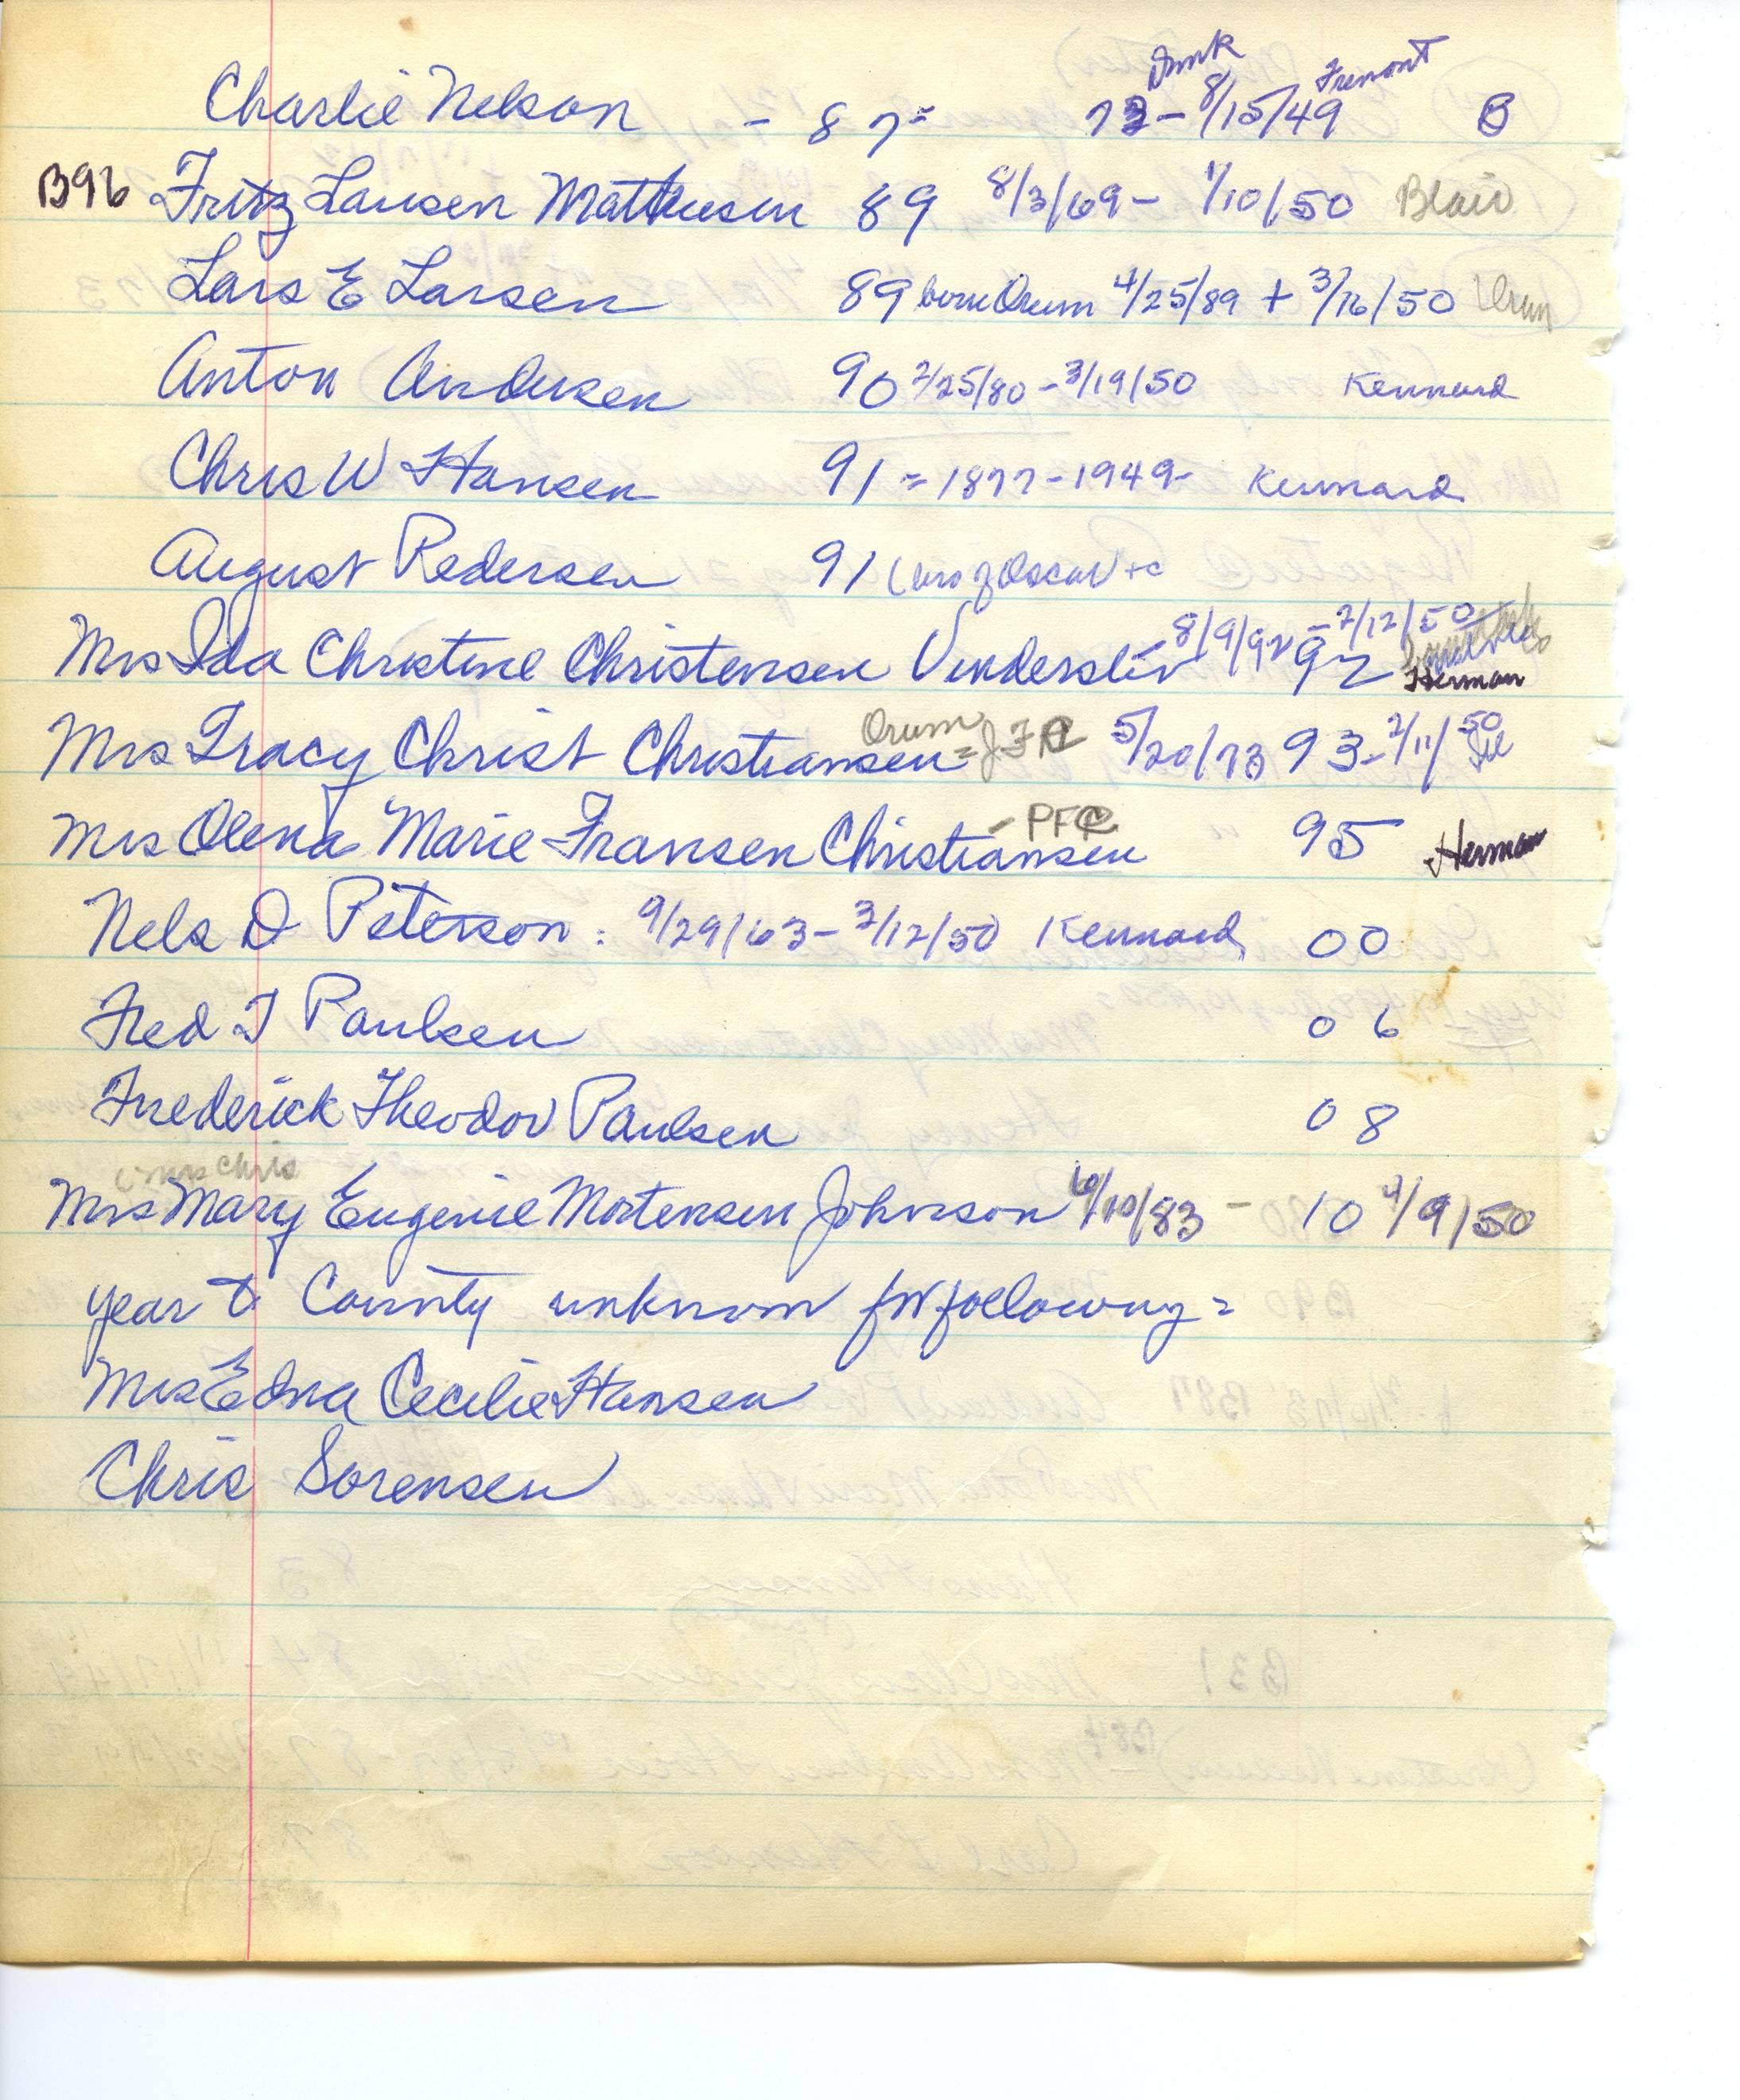 Charlie Nelson - 87= 73 - 8/15/49 Fremont B
B96 Fritz Lausen Mathiesen 89 8/3/69 - 1/10/50 Blair
Lars E Larsen 89 born Orum 4/25/89 + 3/16/50 Orum
Anton Andersen 90 2/25/80 - 3/19/50 Kennard
Chris W Hansen 91 = 1877 - 1949 - Kennard
August Pedersen 91 (bro of Oscar +c
Mrs Ida Christine Christensen Vinderslev 8/9/92 92 - 2/12/50 Herman
Mrs Tracy Christ Christiansen = Orum 5/20/73 93 - 2/11/50
Mrs Olena Marie Fransen Christiansen - PFC 95 Herman
Nels D Peterson: 9/29/63 - 3/12/50 Kennard 00
Fred T Paulsen 06
Frederick Theodor Paulsen 08
(Mrs Chris
Mrs Mary Eugenie Mortensen Johnson 6/10/83 - 10 4/9/50
year & County unknown for following =
Mrs Edna Cecilie Hansen
Chris Sorensen